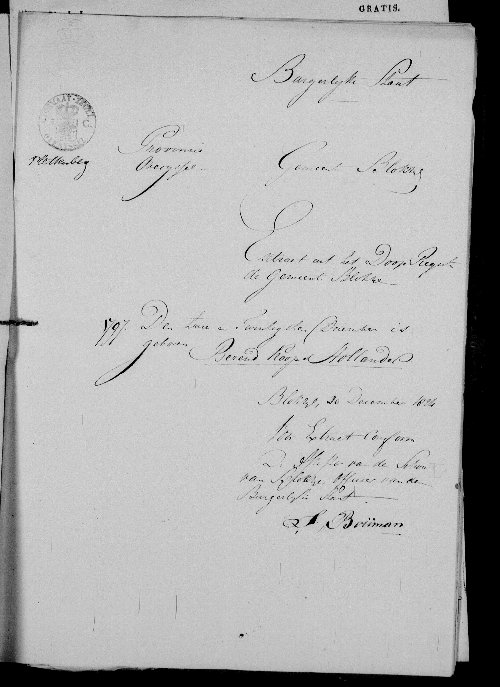 GRATIS.
Burgerlyke Staat
Provincie
Overyssel
Gemeent Blokzyl
Extract uit het Doop Regist
de Gemeent Blokzyl
1797. Den twee en Twintigsten December is
geboren
Berend Hollander
Blokzyl, 20 December 1824
Voor Extract Conform
van de
van Blokzyl, Officier van den
Burgerlyke Staat
Bouman